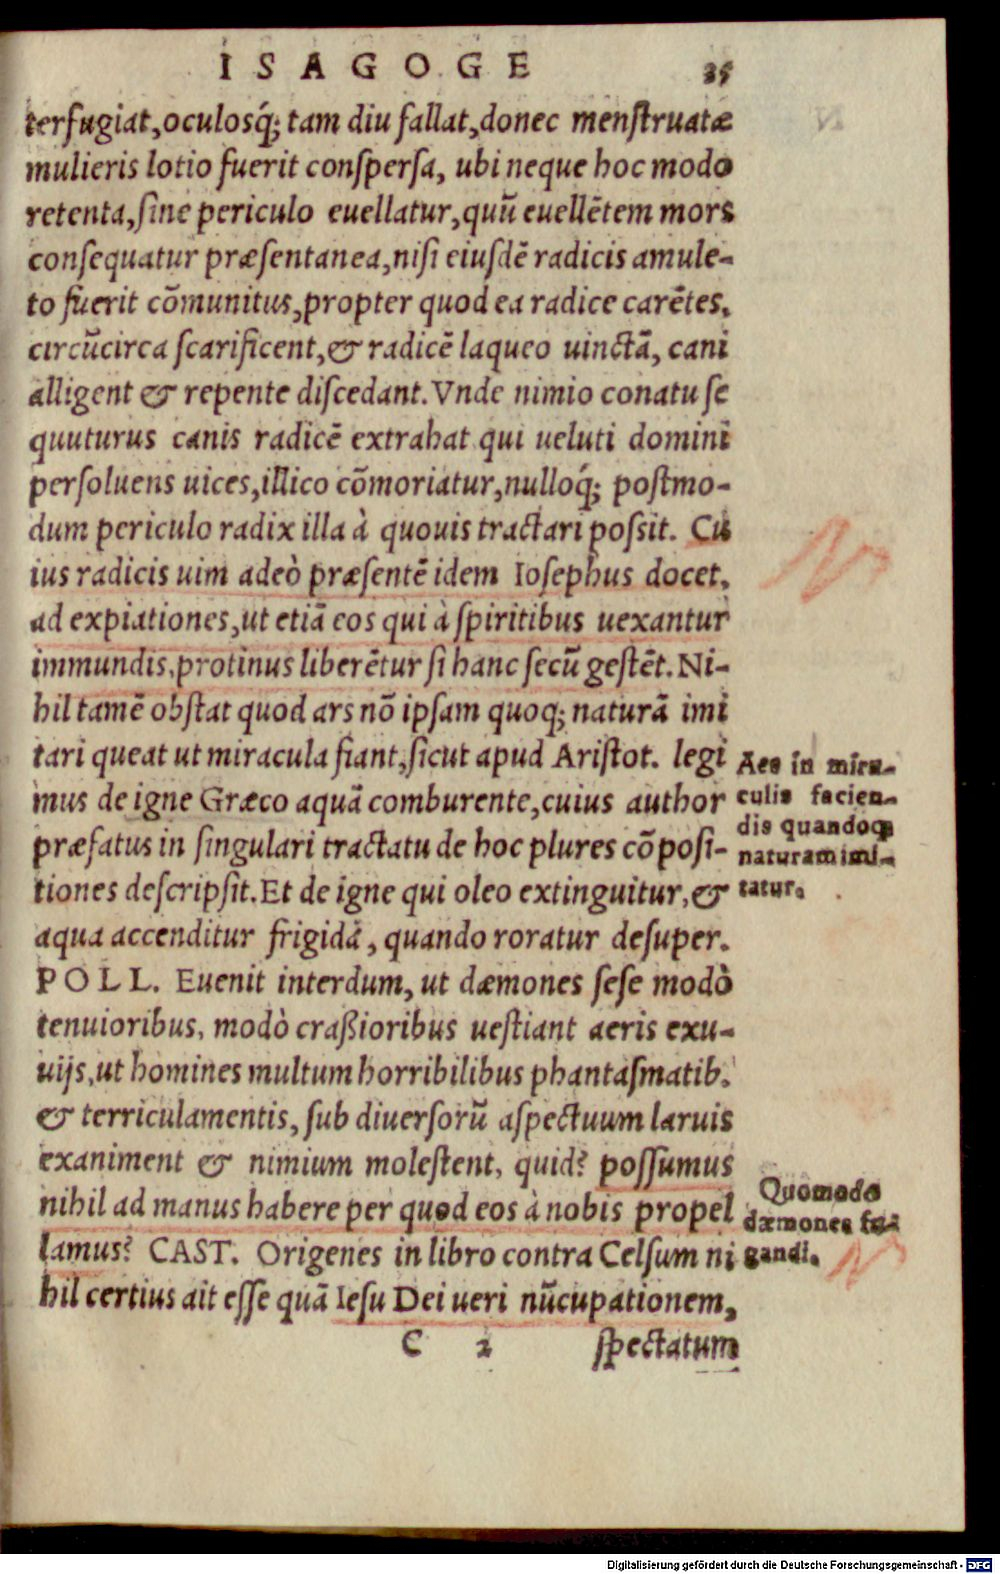 ISAGOGE 35
terfugiat, oculosq́; tam diu fallat, donec menſtruatæ
mulieris lotio fuerit conſperſa, ubi neque hoc modo
retenta, ſine periculo euellatur, quũ euellẽtem mors
conſequatur præſentanea, niſi eiuſdẽ radicis amule-
to fuerit cõmunitus, propter quod ea radice carẽtes,
circũcirca ſcarificent, & radicẽ laqueo uinctã, cani
alligent & repente diſcedant. Vnde nimio conatu ſe
quuturus canis radicẽ extrahat qui ueluti domini
perſoluens uices, illico cõmoriatur, nulloq́; poſtmo-
dum periculo radix illa à quouis tractari poſsit. Cu
ius radicis uim adeò præſentẽ idem Ioſephus docet,
ad expiationes, ut etiã eos qui à ſpiritibus uexantur
immundis, protinus liberẽtur ſi hanc ſecũ geſtẽt. Ni-
hil tamẽ obſtat quod ars nõ ipſam quoq; naturã imi
tari queat ut miracula fiant, ſicut apud Ariſtot. legi
mus de igne Græco aquã comburente, cuius author
præfatus in ſingulari tractatu de hoc plures cõpoſi-
tiones deſcripſit. Et de igne qui oleo extinguitur, &
aqua accenditur frigidá, quando roratur deſuper.
POLL. Euenit interdum, ut dæmones ſeſe modò
tenuioribus, modò craßioribus ueſtiant aeris exu-
uijs, ut homines multum horribilibus phantaſmatib.
& terriculamentis, ſub diuerſorũ aſpectuum laruis
exaniment & nimium moleſtent, quid? poſſumus
nihil ad manus habere per quod eos à nobis propel
lamus? CAST. Origenes in libro contra Celſum ni
hil certius ait eſſe quã Ieſu Dei ueri nũcupationem,
C 2 ſpectatum
Aes in mira-
culis facien-
dis quandoq;
naturam imi-
tatur.
Quomodo
dæmones fu-
gandi.
Digitalisierung gefördert durch die Deutsche Forschungsgemeinschaft - DFG